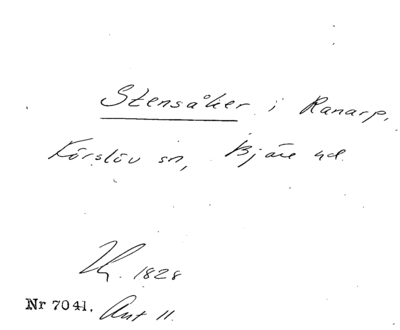 Stensåker i Ranarp,
Förslöv sn, Bjäre hd.
1828
Nr 7041. Ant 11.